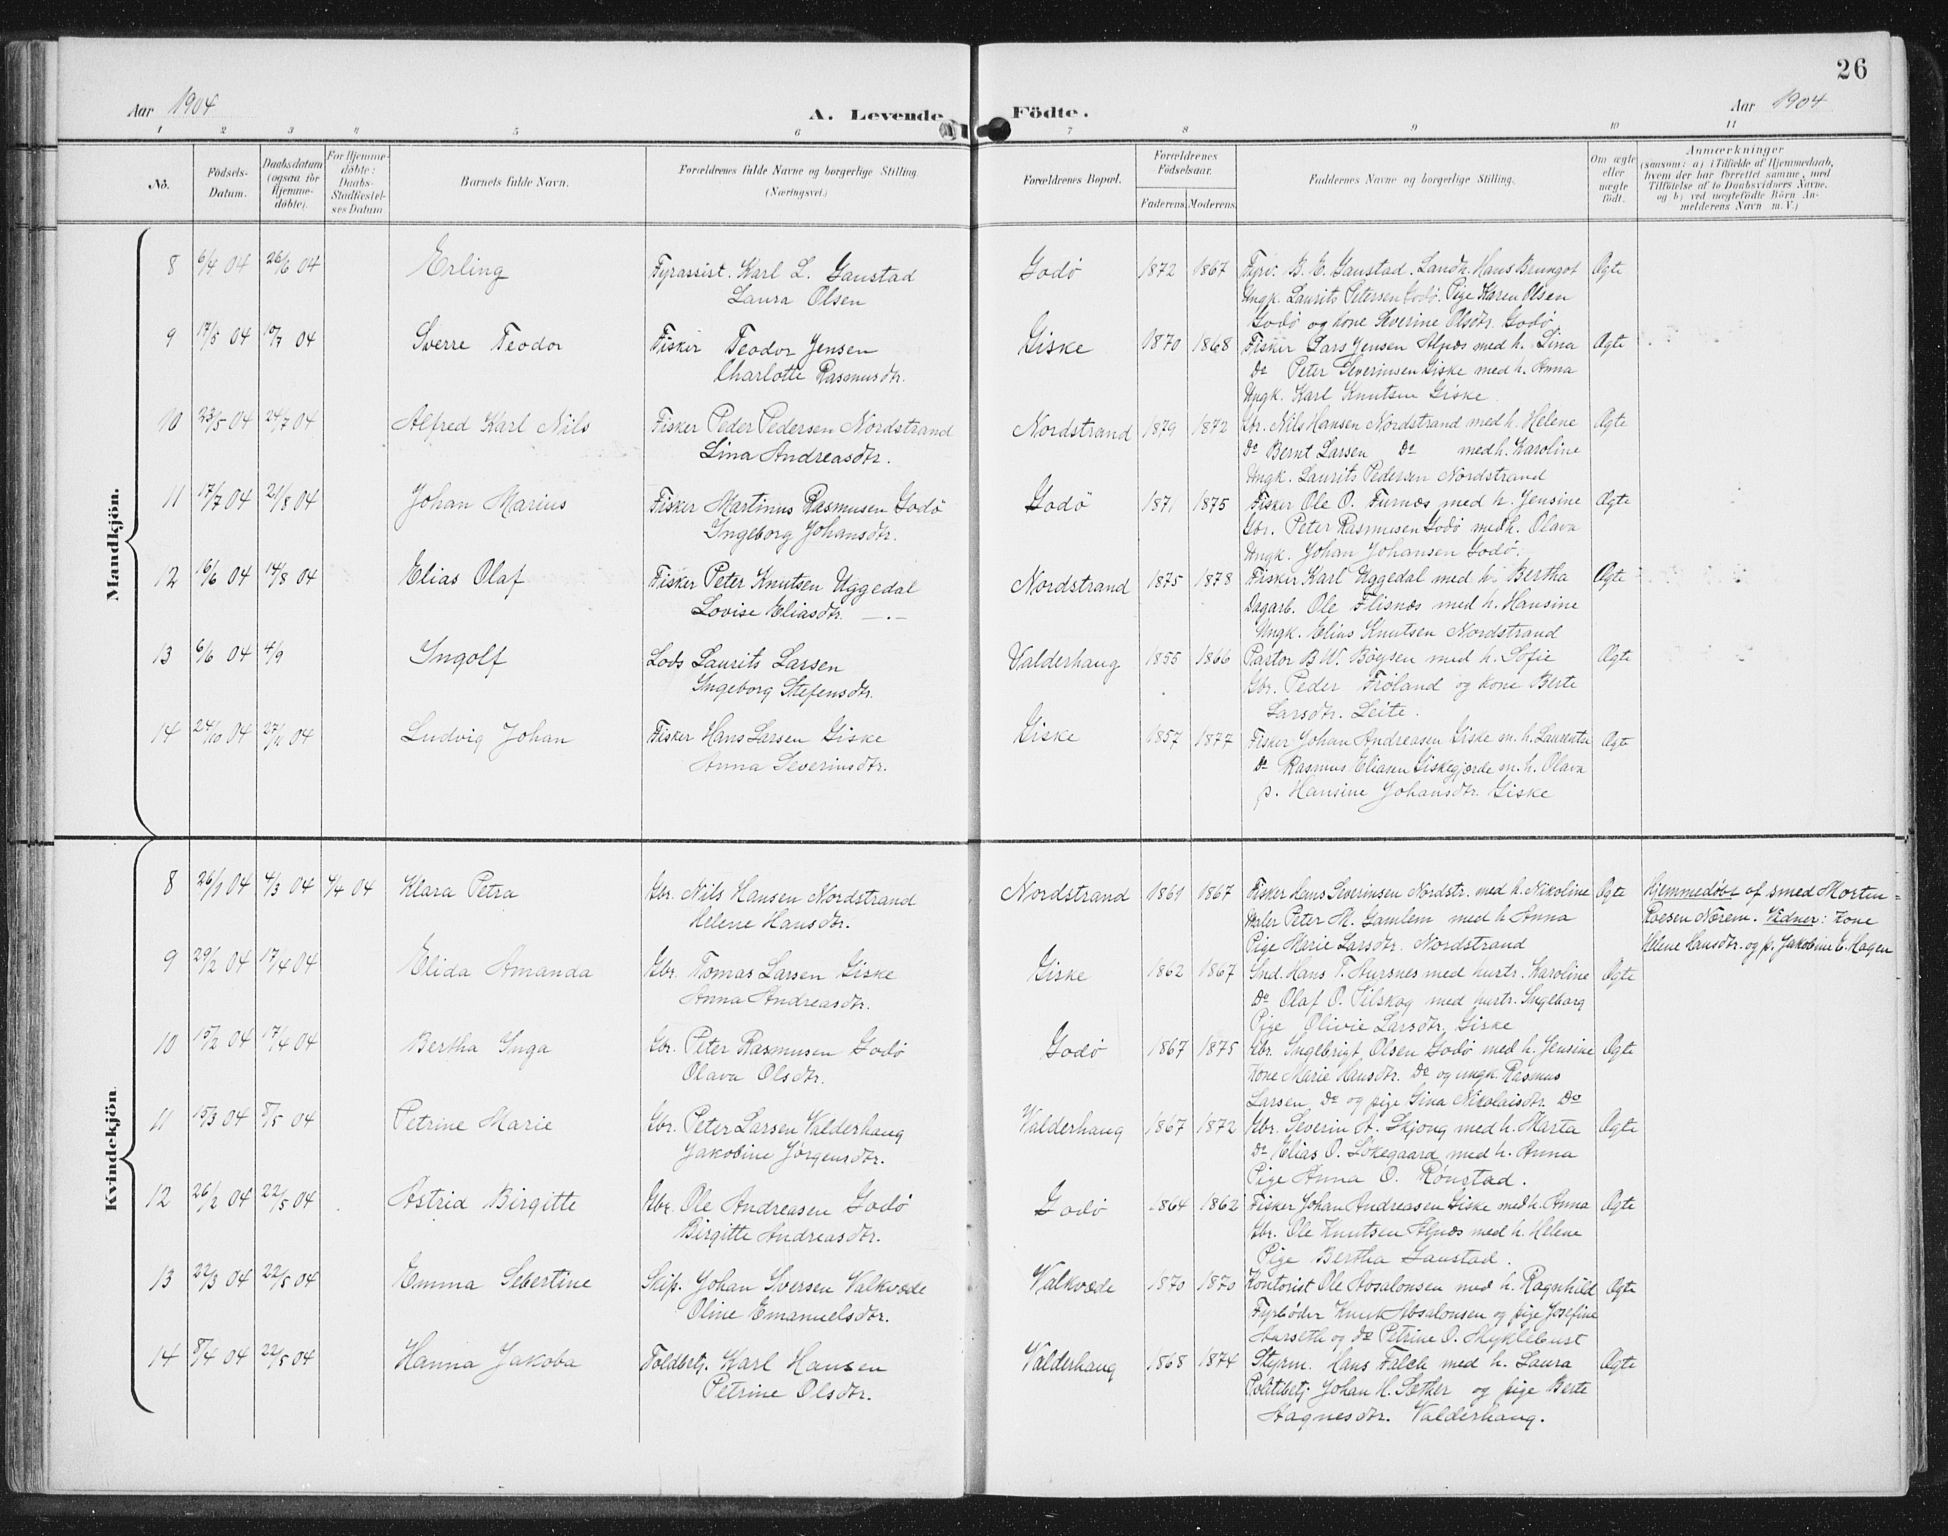 26
Aar 1904
A. Levende Födte.
Aar 1904
1 2 3 4 5 6 7 8 9 10 11
No.
Födsels-Datum.
Daabsdatum (ogsaa for Hjemme-döbte).
For Hjemme-döbte: Daabs-Stadfæstel-ses Datum
Barnets fulde Navn.
Forældrenes fulde Navne og borgerlige Stilling. (Næringsvei.)
Forældrenes Bopæl.
Forældrenes Födselsaar.
Faderens. Moderens.
Faddernes Navne og borgerlige Stilling.
Om ægte eller uægte födt.
Anmærkninger
(saasom: a) i Tilfælde af Hjemmedaab, hvem der har forrettet samme, med Tilföielse af to Daabsvidners Navne, og b) ved uægtefödte Börn An-melderens Navn m. V.)
Mandkjön.
8 6/4 04 26/6 04 Erling Fyrassist. Karl L. Gaustad Godø 1872 1867 Fyrv. B. E. Gaustad. Landh. Hans Brungot Ægte
Laura Olsen Ungk. Laurits Petersen Godø. Pige Karen Olsen
Godø og kone Severine Olsdtr. Godø
9 17/5 04 10/7 04 Sverre Teodor Fisker Teodor Jensen Giske 1870 1868 Fisker Lars Jensen Alnæs med h. Lina Ægte
Charlotte Rasmusdtr. Do Peter Severinsen Giske med h. Anna
Ungk. Karl Knutsen Giske.
10 23/5 04 24/7 04 Alfred Karl Nils Fisker Peder Pedersen Nordstrand Nordstrand 1879 1872 Gbr. Nils Hansen Nordstrand med h. Helene Ægte
Lina Andreasdtr. Do Bernt Larsen Do med h. Karoline
Ungk. Laurits Pedersen Nordstrand
11 17/7 04 21/8 04 Johan Marius Fisker Martinus Rasmusen Godø Godø 1871 1875 Fisker Ole O. Furnæs med h. Jensine Ægte
Ingeborg Johansdtr. Gbr. Peter Rasmusen Godø med h. Olava
Ungk. Johan Johansen Godø.
12 16/6 04 14/8 04 Elias Olaf Fisker Peter Knutsen Uggedal Nordstrand 1875 1878 Fisker Karl Uggedal med h. Bertha Ægte
Lovise Eliasdtr. —.— Dagarb. Ole Flisnæs med h. Hansine
Ungk. Elias Knutsen Nordstrand
13 6/6 04 4/9 Ingolf Lods Laurits Larsen Valderhaug 1855 1866 Pastor B. W. Bøysen med h. Sofie Ægte
Ingeborg Stefensdtr. Gbr. Peder Frøland og kone Berte
Larsdtr. Leite.
14 24/10 04 27/11 04 Ludvig Johan Fisker Hans Larsen Giske Giske 1857 1877 Fisker Johan Andreasen Giske m. h. Laurentse Ægte
Anna Severinsdtr. Do Rasmus Eliasen Giskegjerde m. h. Olava
p. Hansine Johansdtr. Giske
Kvindekjön
8 26/1 04 4/3 04 4/4 04 Klara Petra Gbr. Nils Hansen Nordstrand Nordstrand 1861 1867 Fisker Hans Severinsen Nordstr. med h. Nikoline Ægte Hjemmedøbt af smed Morten
Helene Hansdtr. Maler Peter M. Gamlem med h. Anna Roesen Nærem. Vidner: kone
Pige Marie Larsdtr. Nordstrand Helene Hansdtr. og p. Jakobine E. Hagen
9 29/2 04 17/4 04 Elida Amanda Gbr. Tomas Larsen Giske Giske 1862 1867 Gmd. Hans T. Aursnes med hustr. Karoline Ægte
Anna Andreasdtr. Do Olaf O. Pilskog med hustr. Ingeborg
Pige Olivie Larsdtr. Giske
10 15/2 04 17/4 04 Bertha Inga Gbr. Peter Rasmusen Godø Godø 1867 1875 Gbr. Ingebrigt Olsen Godø med h. Jensine Ægte
Olava Olsdtr. kone Marie Hansdtr. Do og ungk. Rasmus
Larsen Do og pige Gina Nikolaisdtr. Do
11 15/3 04 8/5 04 Petrine Marie Gbr. Peter Larsen Valderhaug Valderhaug 1867 1872 Gbr. Severin A. Skjong med h. Marta Ægte
Jakobine Jørgensdtr. Do Elias O. Løkegaard med h. Anna
Pige Anna O. Rønstad.
12 26/2 04 22/5 04 Astrid Birgitte Gbr. Ole Andreasen Godø Godø 1864 1862 Fisker Johan Andreasen Giske med h. Anna Ægte
Birgitte Andreasdtr. Gbr. Ole Knutsen Alnæs med h. Helene
Pige Bertha Gaustad.
13 22/3 04 22/5 04 Emma Sebertine Skip. Johan Iversen Valkvæde Valkvæde 1870 1870 Kontorist Ole Absalonsen med h. Ragnhild Ægte
Oline Emanuelsdtr. Fyrbøder Knut Absalonsen og pige Josefine
Aarseth og do Petrine O. Myklebust
14 8/4 04 22/5 04 Hanna Jakoba Toldbetj. Karl Hansen Valderhaug 1868 1874 Styrm. Hans Falch med h. Laura Ægte
Petrine Olsdtr. Politibetj. Johan H. Sæther og pige Berte
Aagnesdtr. Valderhaug.